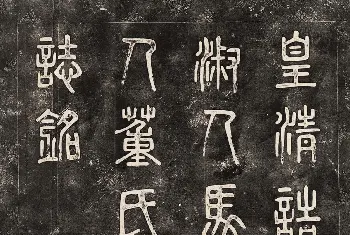 皇清誥
淑人馬
人董氏
誌銘